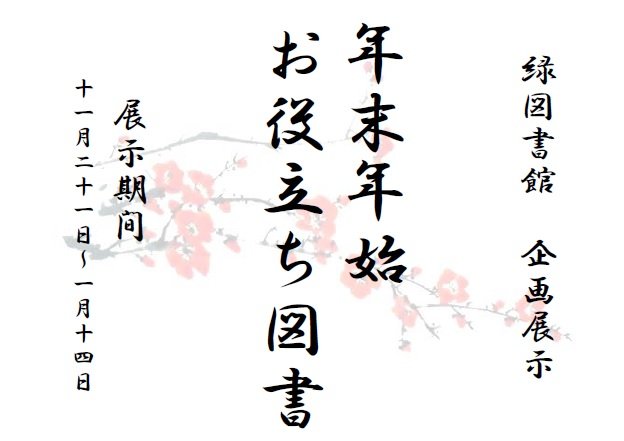 緑図書館　企画展示
年末年始
お役立ち図書
展示期间
十一月二十一日～一月十四日